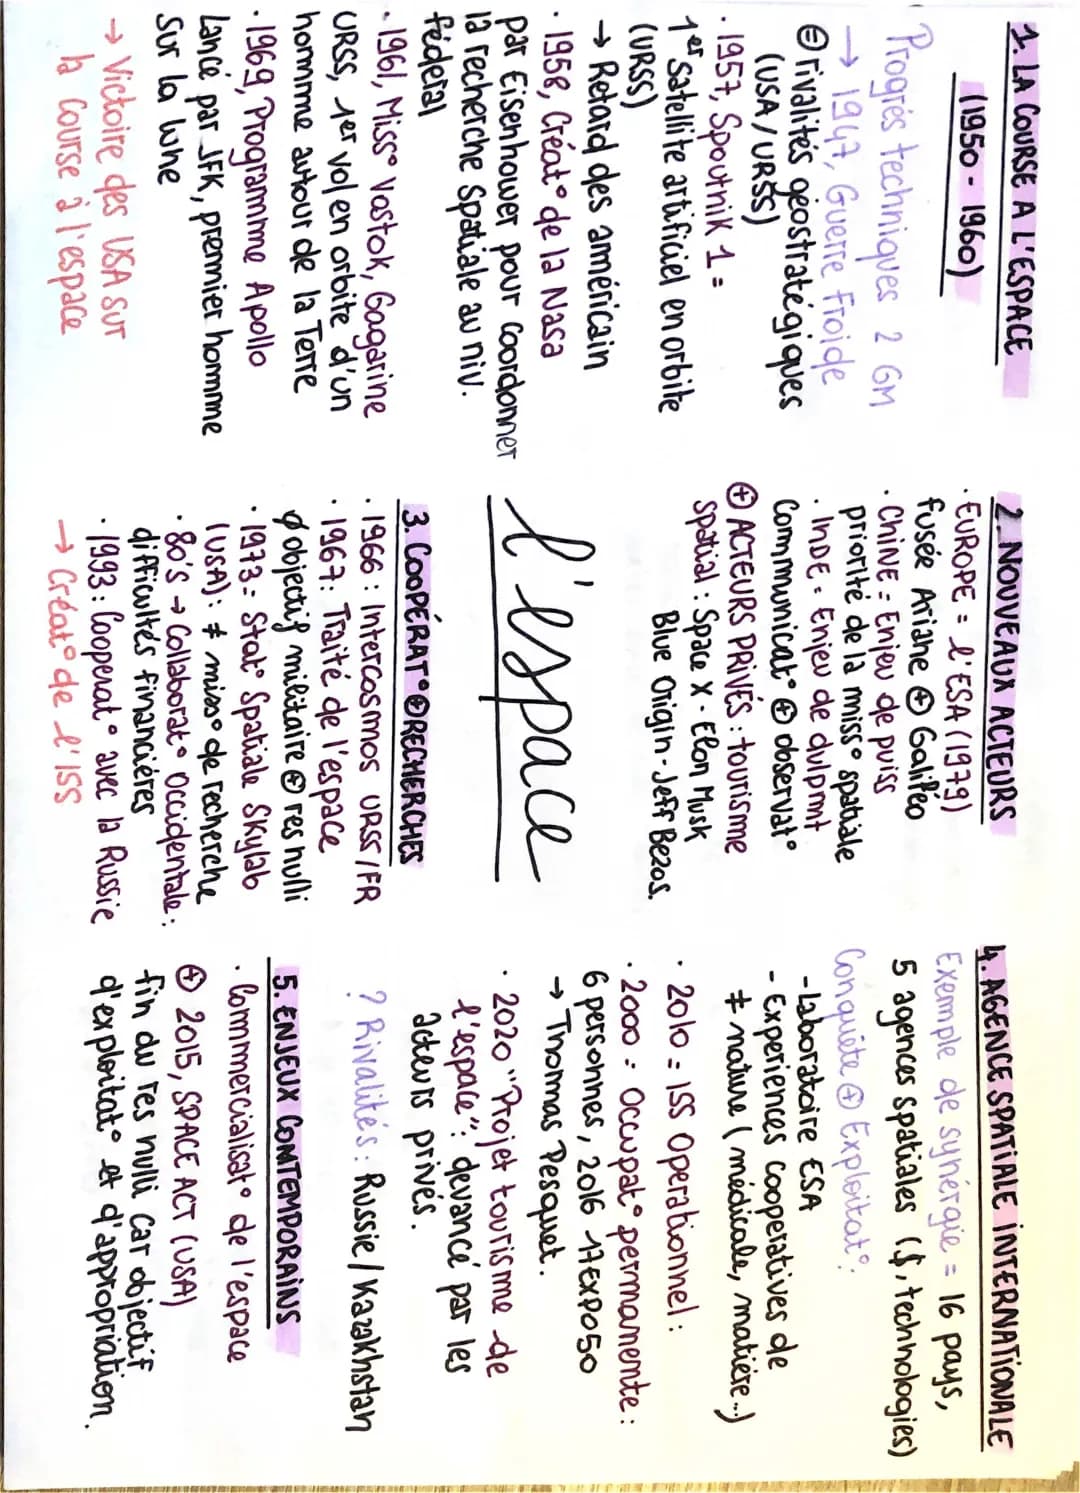 1. LA COURSE A L'ESPACE
(1950 - 1960)
Progrés techniques 2 GM
→ 1947, Guerre froide
⊜ rivalités géostratégiques
(USA/URSS)
· 1957, Spoutnik 1 =
1er satellite artificiel en orbite
(URSS)
→ Retard des américain
· 1958, Créat° de la Nasa
par Eisenhower pour coordonner
la recherche spatiale au niv.
féderal
· 1961, Miss° Vostok, Gagarine
URSS, 1er vol en orbite d'un
homme autour de la Terre
· 1969, Programme Apollo
Lancé par JFK, premmier homme
sur la lune
→ Victoire des USA sur
la course à l'espace
2. NOUVEAUX ACTEURS
· EUROPE = l'ESA (1979)
fusée Ariane ⊕ Galiléo
· CHINE = Enjeu de puiss
priorité de la miss° spatiale
· INDE = Enjeu de dvlpmt
Communicat° ⊕ observat°
⊕ ACTEURS PRIVÉS : tourisme
spatial : Space X - Elon Musk
Blue Origin - Jeff Bezos.
l'espace
3. COOPÉRAT° ⊕ RECHERCHES
· 1966 : Intercosmos URSS/FR
· 1967 : Traité de l'espace
∅ objectif militaire ⊕ res nulli
· 1973 = Stat° Spatiale Skylab
(USA) : ≠ miss° de recherche
· 80's → Collaborat° Occidentale :
difficultés financiéres
· 1993 : Cooperat° avec la Russie
→ Créat° de l'ISS
4. AGENCE SPATIALE INTERNATIONALE
Exemple de synérgie = 16 pays,
5 agences spatiales ($, technologies)
Conquéte ⊕ Exploitat° :
- Laboratoire ESA
- Experiences cooperatives de
≠ nature (médicale, matiére...)
· 2010 = ISS Operationnel :
· 2000 = Occupat° permamente :
6 personnes, 2016 47 EXPO50
→ Thomas Pesquet.
· 2020 "Projet tourisme de
l'espace" : devancé par les
acteurs privés.
? Rivalités : Russie/Kazakhstan
5. ENJEUX COMTEMPORAINS
· Commmercialisat° de l'espace
⊕ 2015, SPACE ACT (USA)
fin du res nulli car objectif
d'exploitat° et d'appropriation.